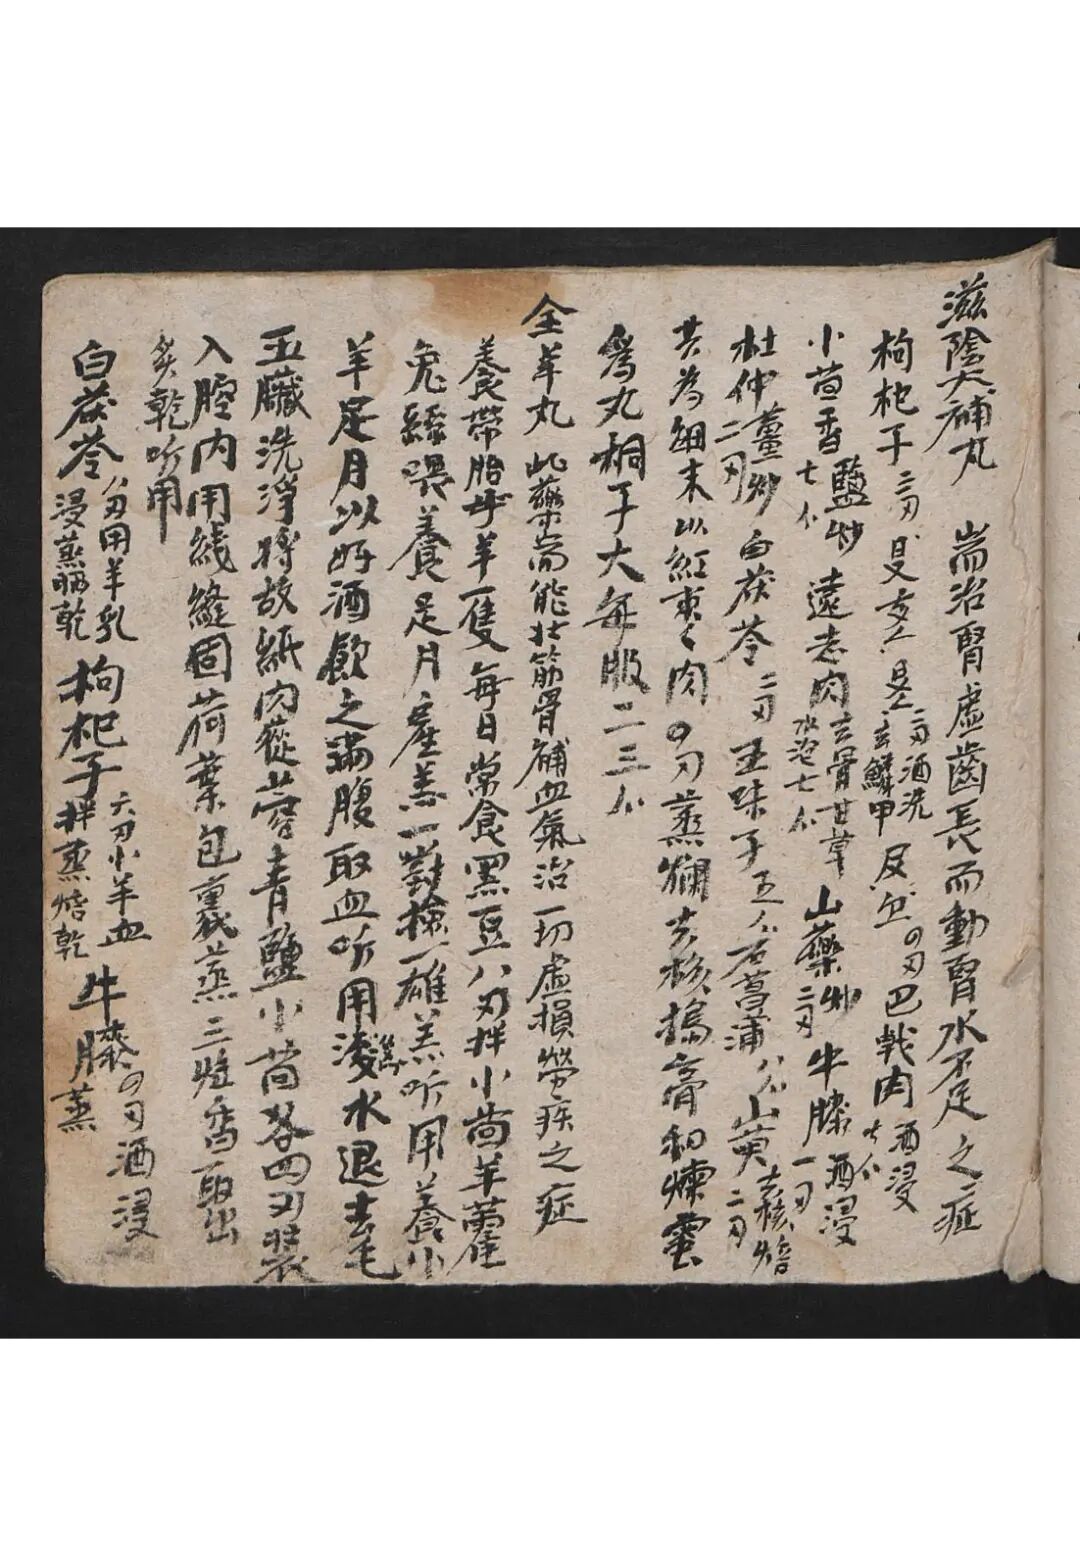 滋陰大補丸 耑治腎虛齒長而動腎水不足之症
枸杞子 二刃 二刃酒洗去鱗甲 四刃 巴戟肉 酒浸
小茴香 鹽炒 七个 遠志肉 去骨甘草水泡七个 山藥 炒二刃 牛膝 一刃酒浸
杜仲 薑炒二刃 白茯苓 二刃 五味子 五个 石菖蒲 八个 山萸 二刃去核焙
共為細末以紅棗肉四刃蒸爛去核搗膏和煉蜜
為丸桐子大每服二三个
全羊丸 此藥耑能壯筋骨補血氣治一切虛損勞疾之症
養帶胎母羊一隻每日常食黑豆八刃拌小茴羊藿
兔絲喂養足月產羔一對擒一雄羔听用養小
羊足月以好酒飲之滿腹取血听用滾水退去毛
五臟洗淨將故紙肉蓯蓉青鹽小茴各四刃裝
入腔內用綫縫固荷葉包裹蒸三炷香取出
炙乾听用
白茯苓 八刃用羊乳浸蒸晒乾 枸杞子 六刃小羊血拌蒸焙乾 牛膝 四刃酒浸蒸